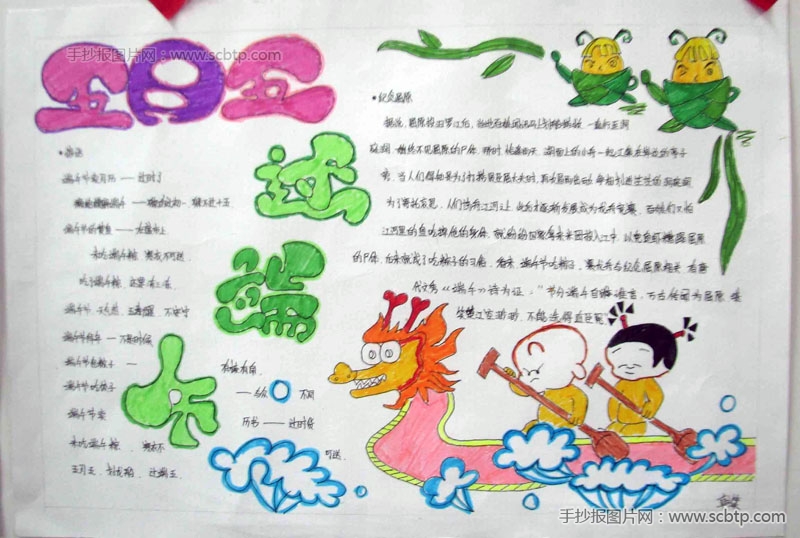 手抄报图片网：www.scbtp.com
五月五
过
端
午
端午节卖月历——过时了
端午节的黄鱼——在盛市上
未吃端午粽，寒衣不可送
吃了端午粽，还要冻三冻
端午节，天气热；五毒醒，不安宁
端午节拜年——不是时候
端午节包粽子——
端午节吃饺子
端午节卖
未吃端午粽，寒衣不
五月五，划龙船，过端五。
有棱有角
不同
历书——过时货
可送。
•纪念屈原
据说，屈原投汨罗江后，当地百姓闻讯马上划船捞救，一直行至洞
庭湖，始终不见屈原的尸体。那时，恰逢雨天，湖面上的小舟一起汇集在岸边的亭子
旁。当人们得知是为了打捞贤臣屈大夫时，再次冒雨出动，争相划进茫茫的洞庭湖
为了寄托哀思，人们荡舟江河上，此后才逐渐发展成为龙舟竞赛。百姓们又怕
江河里的鱼吃掉他的身体，就纷纷回家拿来米团投入江中，以免鱼虾糟蹋屈原
的尸体，后来就成了吃粽子的习俗。看来，端午节吃粽子，赛龙舟与纪念屈原相关，有唐
代文秀《端午》诗为证：“节分端午自谁言，万古传闻为屈原。堪
笑楚江空渺渺，不能洗得直臣冤。”
手抄报图片网：www.scbtp.com